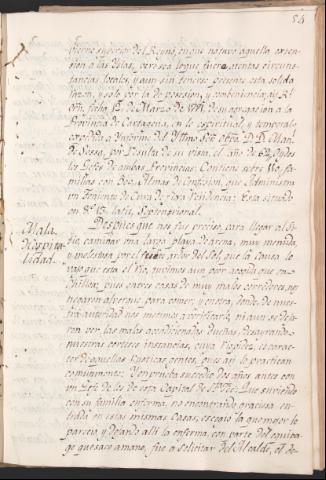 54
fierno superior del Reyno, en que no tuvo aquella exten-
sion a las Yslas, pero sea lo que fuere, atentas circuns-
tancias locales, y aun sin tenerse presente esta solida
razon, y solo por la de posesion, y conveniencia, ay Rl.
Orn. fecha 12 de Marzo de 1771 de su agregacion a la
Provincia de Cartagena, en lo espiritual, y temporal,
a Ynforme del Yllmo. Sor. Obpo. D. D. Manl.
Sosa, por resulta de su visita, el año de 69, y de los
Gefes de ambas Provincias. Contiene sobre 110 fa-
millas con 800 Almas de Confesion, que Administra
un Teniente de Cura de fixa Residencia: Esta situado
en 8.º 13. latit. Septentrional.
Mala
ospita-
lidad
Despues que nos fue preciso, para llegar al Si-
tio, caminar una larga playa de arena, muy menuda,
y molestosa por el fuerte ardor del Sol, que la causa lo
vajo que esta el Rio, tuvimos aun peor acogida que en
Chilloa; pues varios casas de muy malos corredores, nos
negaron alvergue para comer, y en otra, donde de nues-
tra autoridad nos metimos a verificarlo, ni aun se deli-
ron por las malas acondicionadas dueñas, desayrando
nuestras corteses instancias, cuya rigidez es carac-
ter de aquellas rusticas gentes, pues asi lo practican
comunmente: Y en prueba sucedio dos años antes con
un Gefe de los de esta Capital de Que subiendo
con su familia enferma, no encontrando graciosa en-
trada en estas mismas Casas, escogio la que mejor le
parecio, y dejando alli la enferma, con parte del equipa-
ge que saco a mano, fue a solicitar del Alcalde, el de-